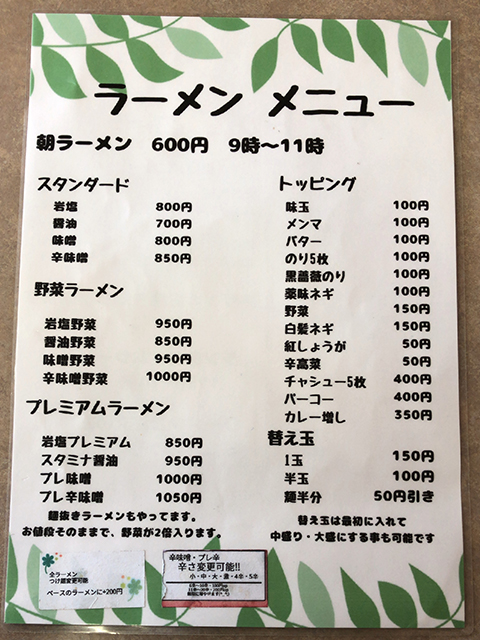 ラーメン メニュー
朝ラーメン 600円 9時〜11時
スタンダード
岩塩 800円
醤油 700円
味噌 800円
辛味噌 850円
野菜ラーメン
岩塩野菜 950円
醤油野菜 850円
味噌野菜 950円
辛味噌野菜 1000円
プレミアムラーメン
岩塩プレミアム 850円
スタミナ醤油 950円
プレ味噌 1000円
プレ辛味噌 1050円
麺抜きラーメンもやってます。
お値段そのままで、野菜が2倍入ります。
全ラーメン
つけ麺変更可能
ベースのラーメンに+200円
トッピング
味玉 100円
メンマ 100円
バター 100円
のり5枚 100円
黒薔薇のり 100円
薬味ネギ 100円
野菜 150円
白髪ネギ 150円
紅しょうが 50円
辛高菜 50円
チャシュー5枚 400円
パーコー 400円
カレー増し 350円
替え玉
1玉 150円
半玉 100円
麺半分 50円引き
替え玉は最初に入れて
中盛り・大盛にする事も可能です
辛味噌・プレ辛
辛さ変更可能!!
小・中・大・激・4辛・5辛